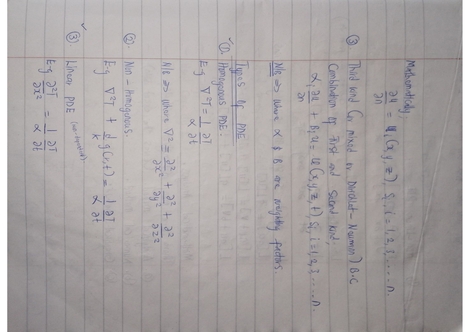 Mathematically,
∂u/∂n = φ_i (x, y, z), S_i, i = 1, 2, 3, .... n.
③ Third kind (or mixed or Dirichlet - Neuman) B.C
Combination of First and Second kind;
α_i ∂u/∂n + B_i u = φ(x, y, z, t) S_i, i = 1, 2, 3, ... n.
N/B => where α & B are weighting factors.
Types Of PDE
✓①. Homogenous PDE.
E.g ∇²T = 1/α ∂T/∂t
N/B => where ∇² = ∂²/∂x² + ∂²/∂y² + ∂²/∂z²
②. Non - Homogenous.
E.g ∇²T + 1/k g(r, t) = 1/α ∂T/∂t
✓③. Linear PDE
E.g ∂²T/∂x² = 1/α ∂T/∂t